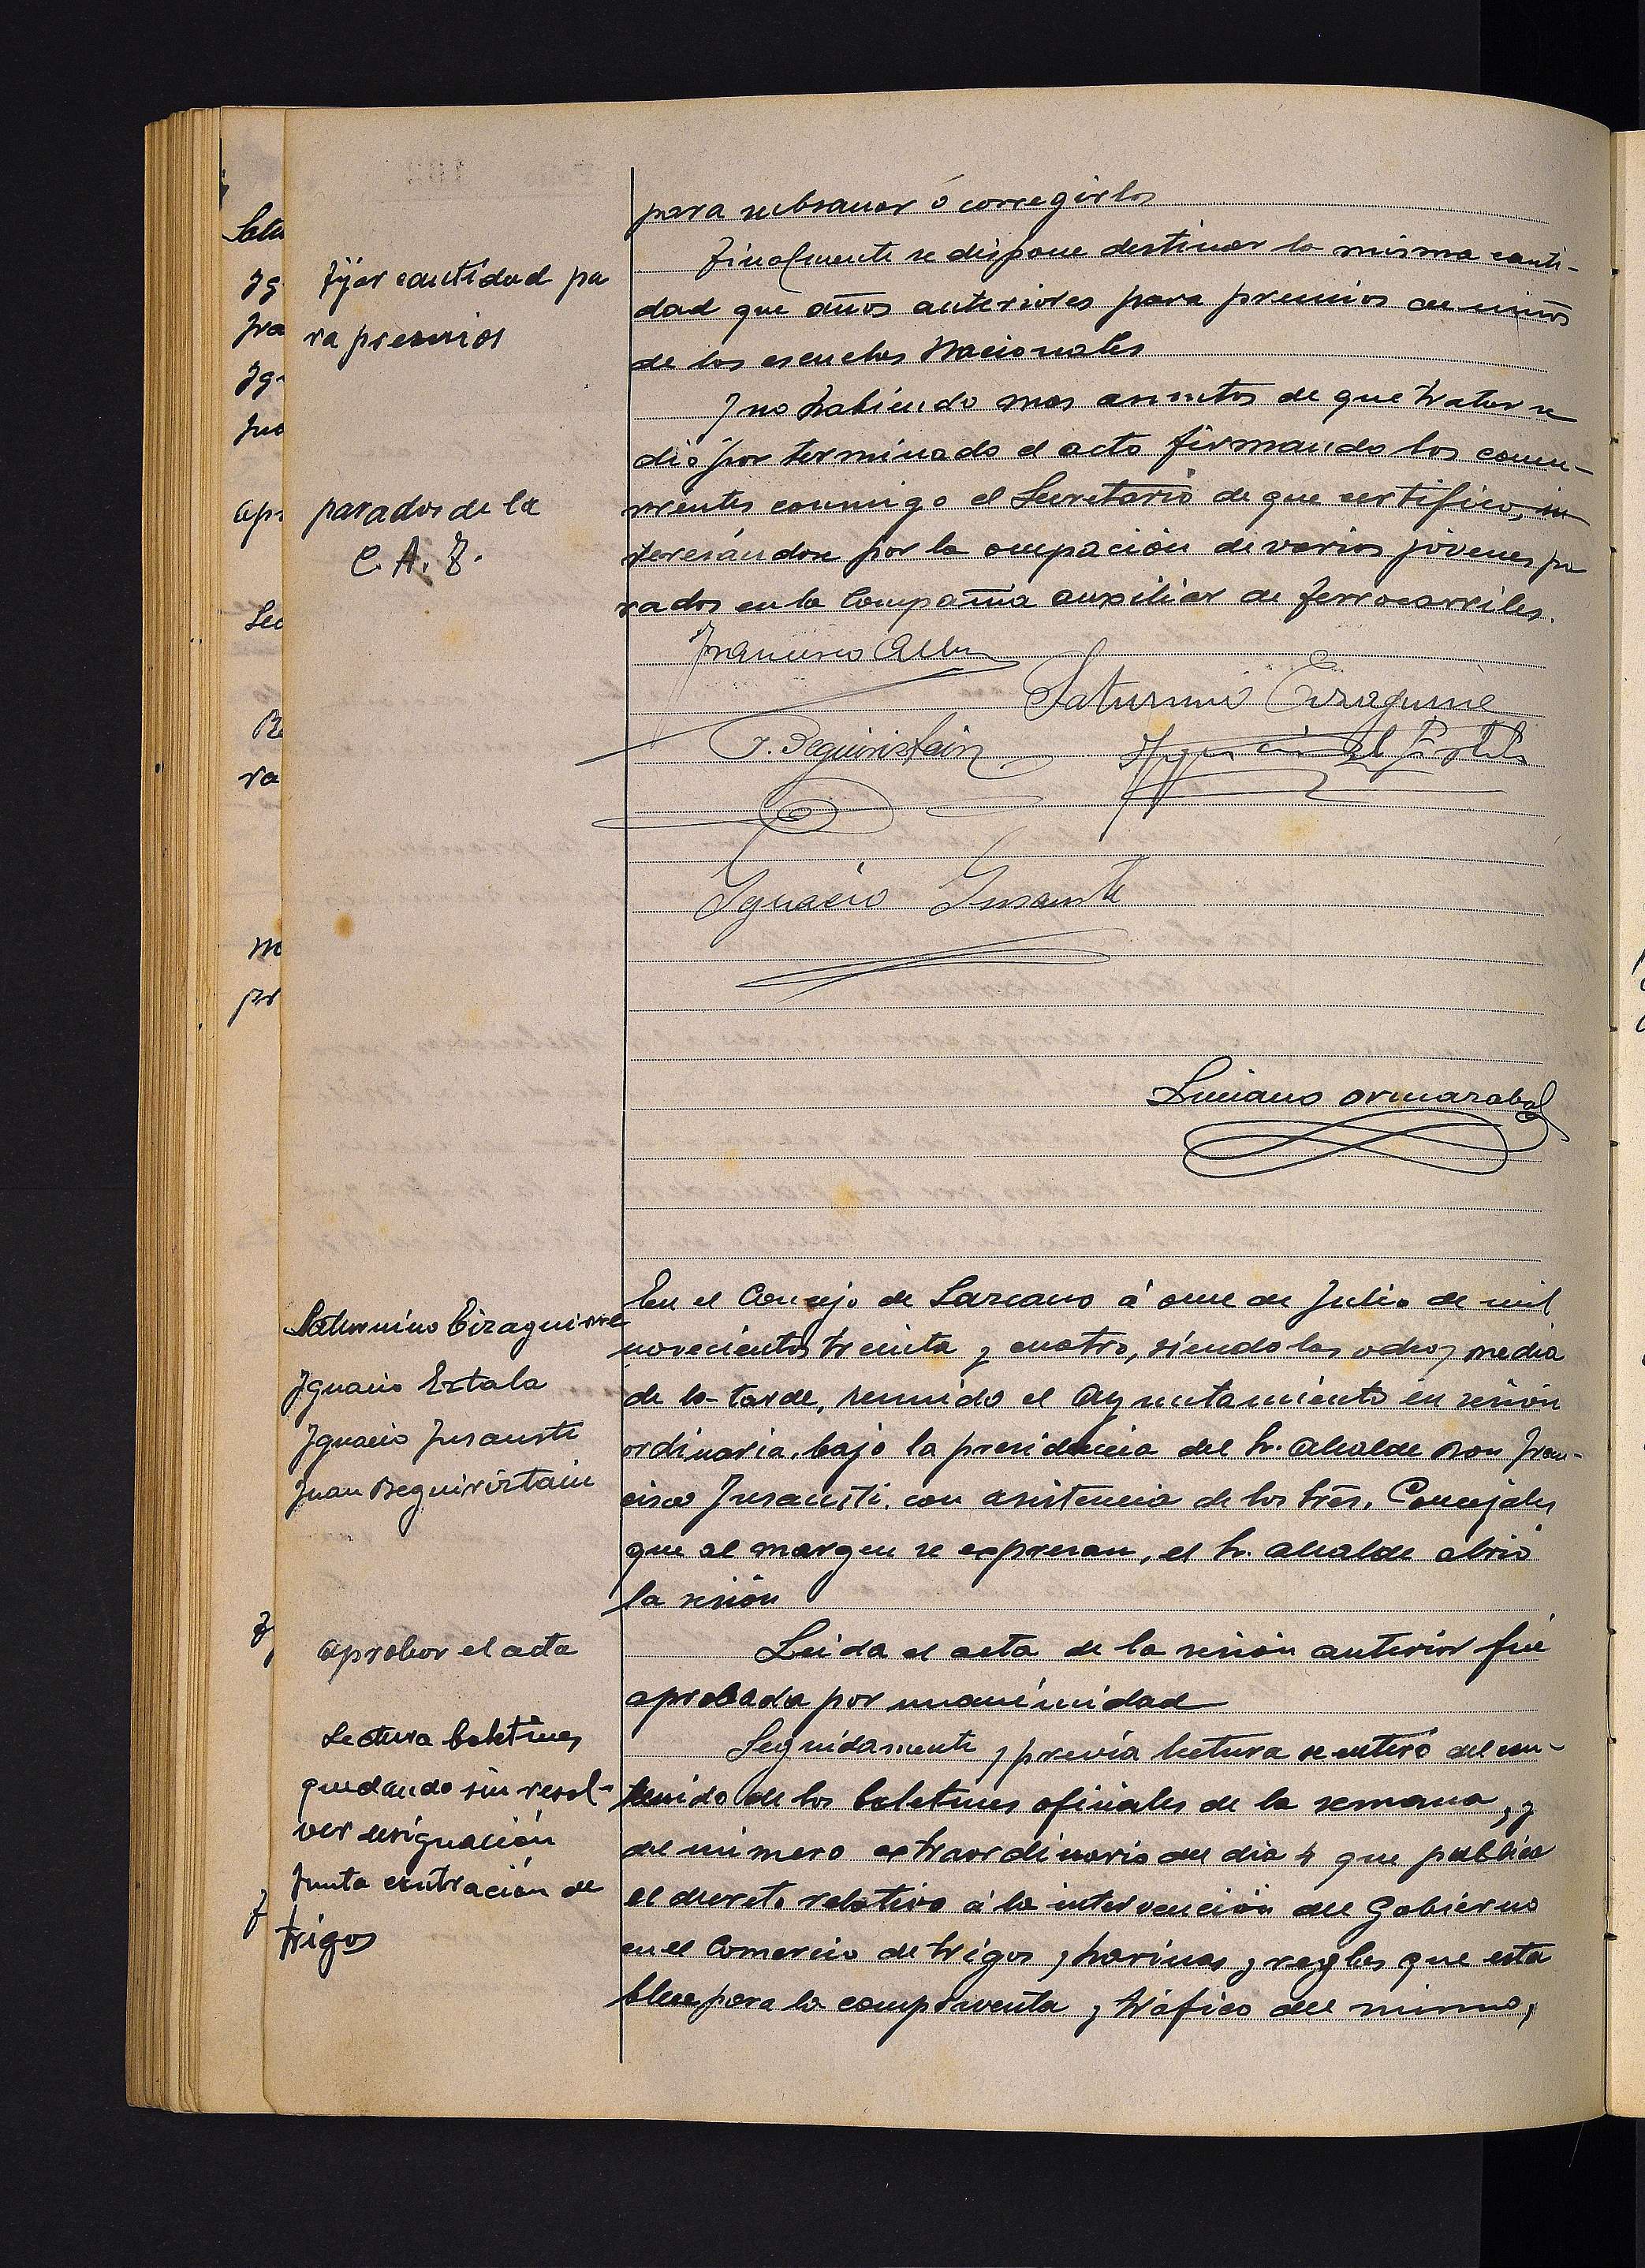 para subsanar ó corregirlos
Fijar cantidad pa
ra premios
Finalmente se dispone destinar la misma canti-
dad que años anteriores para premios de niños
de las escuelas Nacionales
Y no habiendo mas asuntos de que tratar se
dió por terminado el acto firmando los concu-
rrentes conmigo el Secretario de que certifico, in
parados de la
C. A. F.
teresándose por la ocupación de varios jóvenes pa
rados en la Compañia auxiliar de ferrocarriles.
Francisco
Saturnino Eizaguirre
J. Beguiristain
Ignacio Insausti
Luciano Ormazabal
Saturnino Eizaguirre
Ignacio Estala
Ignacio Insausti
Juan Beguiristain
En el Concejo de Lazcano á once de Julio de mil
novecientos treinta y cuatro, siendo las ocho y media
de la tarde, reunido el Ayuntamiento en sesión
ordinaria, bajo la presidencia del Sr. Alcalde Don Fran-
cisco Insausti, con asistencia de los Srs. Concejales
que al margen se expresan, el Sr. alcalde abrió
la sesión
aprobar el acta
Leida el acta de la sesión anterior fué
aprobada por unanimidad
Lectura boletines
quedando sin resol-
ver designación
Junta contración de
trigos
Seguidamente y previa lectura se enteró del con-
tenido de los boletines oficiales de la semana, y
del número extraordinario del dia 4 que publica
el decreto relativo á la intervención del Gobierno
en el Comercio de trigos y harinas y reglas que esta
blece para la compraventa y tráfico del mismo,